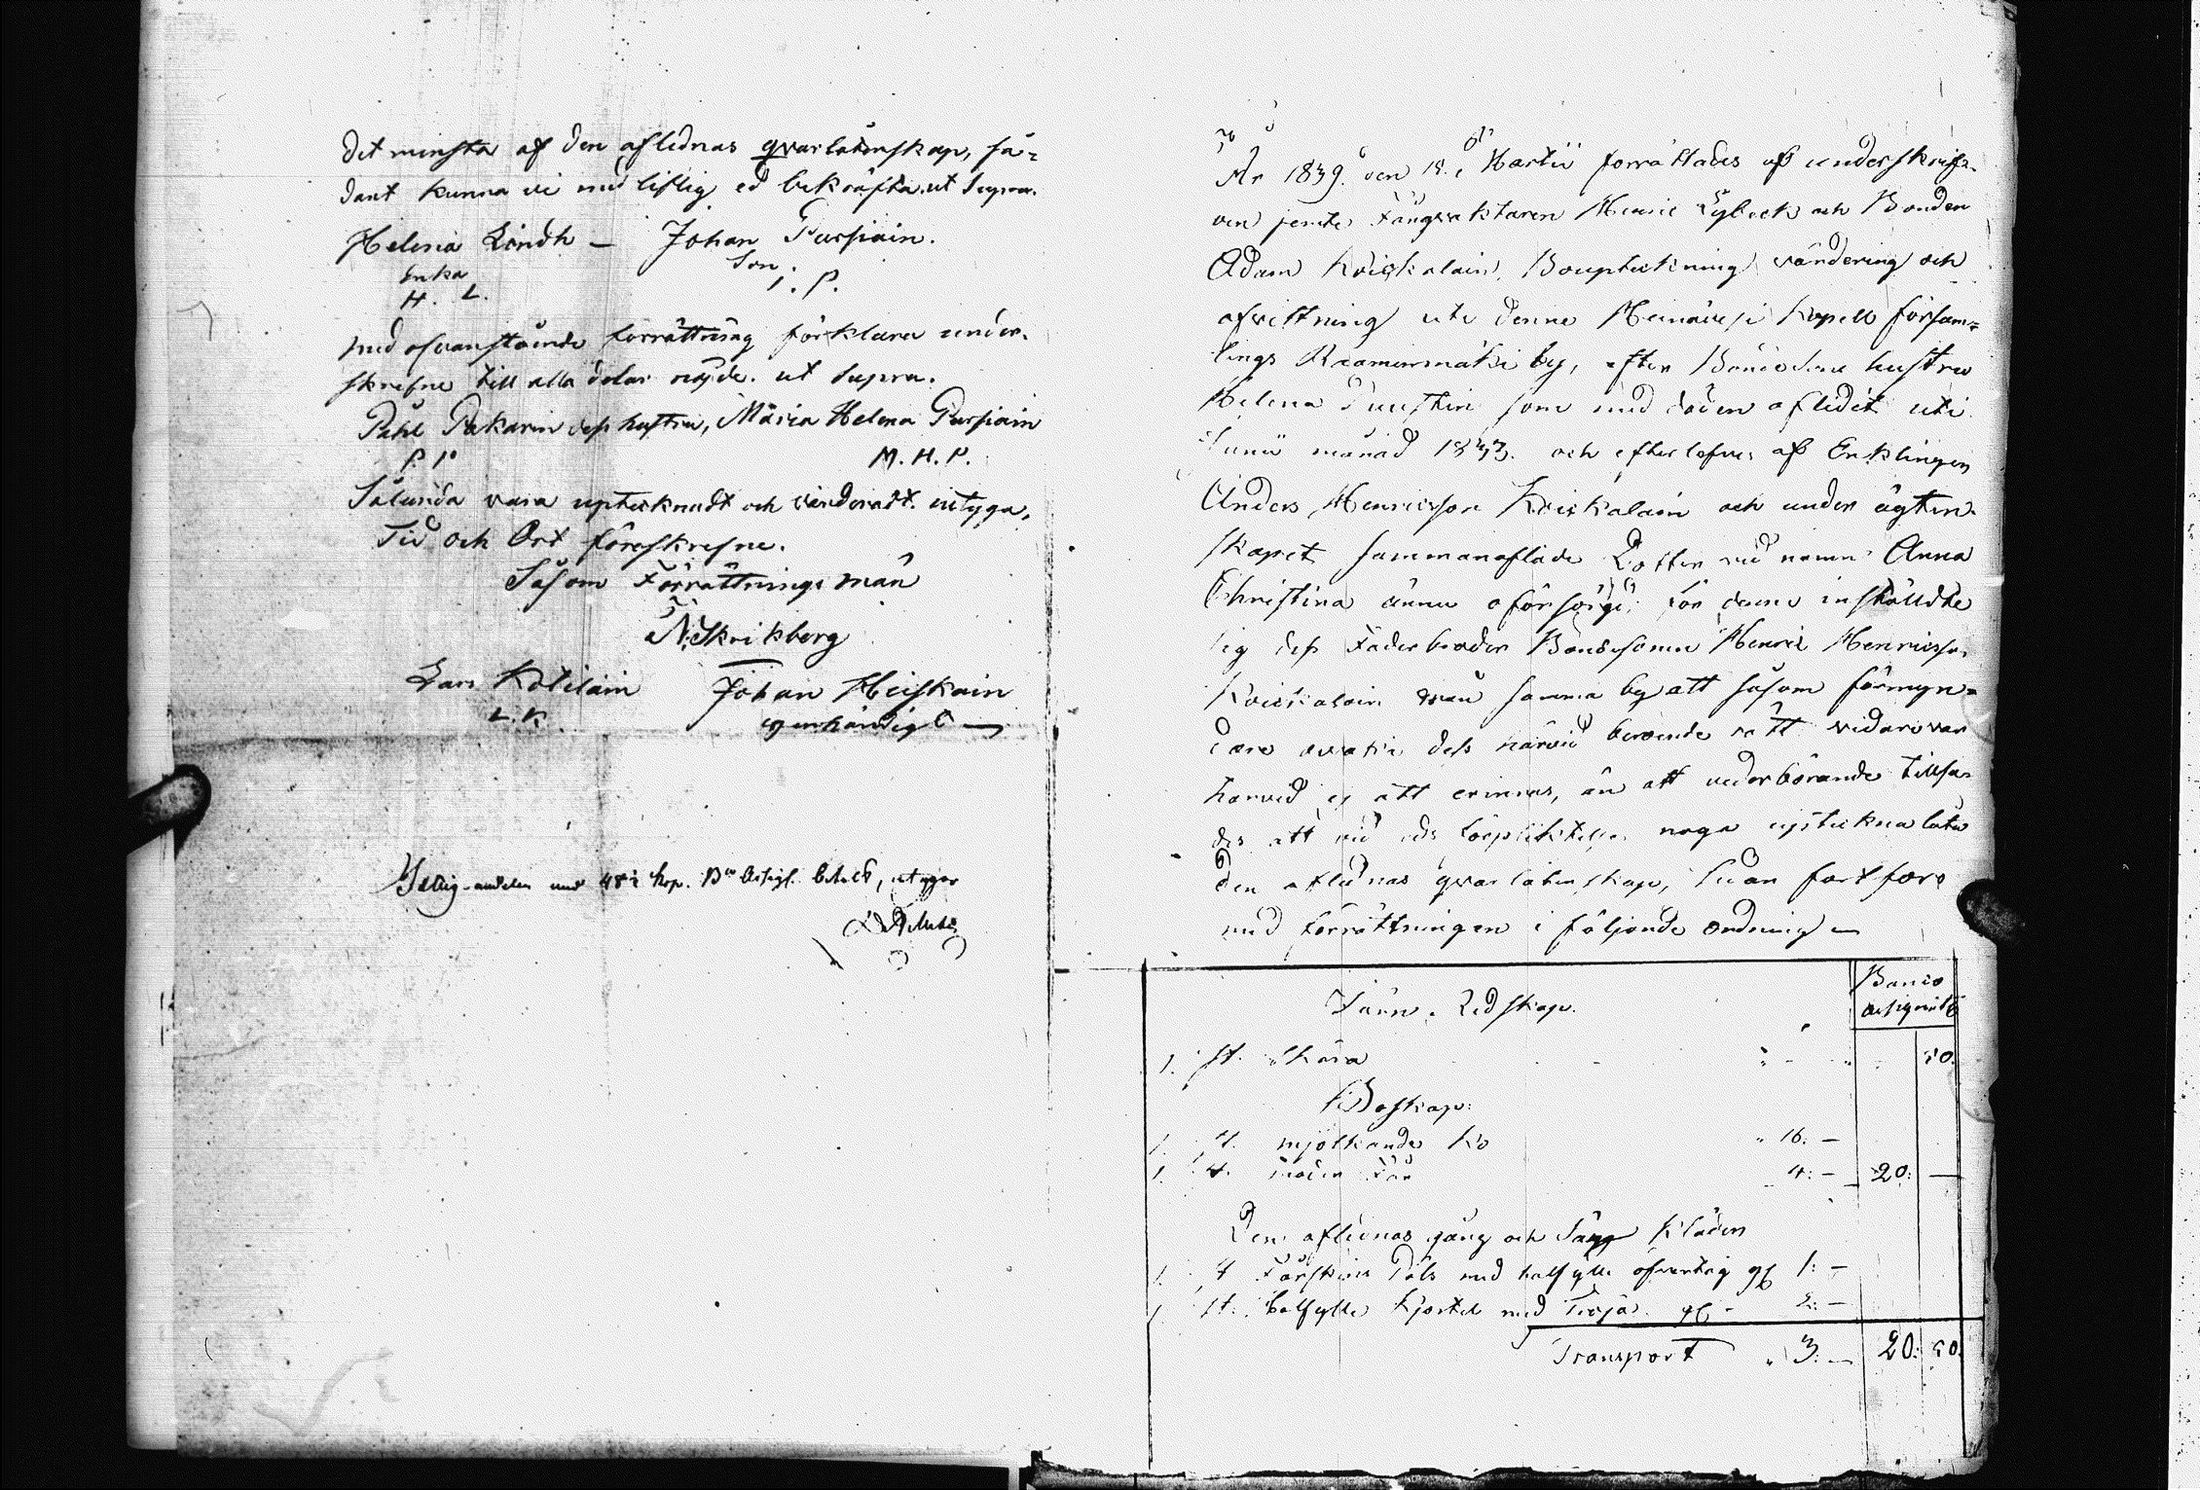 det minsta af den aflidnas qvarlåtenskap, så=
dant kunna vi med liflig ed bekräfta. ut Supra.
Helena Lindh — Johan Purpiain.
Enka Son
H. L. J. P.
med ofvanstående förrättning förklara under-
skrefne till alla delar nöjde. ut supra.
Påhl Pakarin dess hustru, Maria Helena Purpiain
P. P. M. H. P.
Sålunda vara uptecknadt och värderadt. intyga,
Tid och Ort föreskrefne.
Såsom Förrättnings män
N. Skrikberg
Lars Kotilain Johan Heiskain
L. K. egenhändigt —
Fattig-andelen med 48½ kop. B:co Assigt. betald, intygar
År 1839 den 18 Martii förrättades af underskrif-
ven jemte Fångvaktaren Henric Lybeck och Bonden
Adam Koiskalain, Bouptekning värdering och
afvittring uti denne Heinävesi Kapell försam=
lings by, efter Bonden hustru
Helena som med döden aflidit uti
Junii månad 1833. och efterlefves af Enklingen
Anders Henricsson Koiskalain och under ägten-
skapet sammanaflade Dotter vid namn Anna
Christina ännu oförsörgd; för denne instälde
sig dess Faderbroder Bondesonen Henric Henricsson
Koiskalain från samma by att såsom förmyn=
dare dess härvid beroende rätt vidare var
härvid ej att erinras, än att vederbörande tillsa-
des att vid eds förpliktelse noga uptekna låta
den aflidnas qvarlåtenskap, Sedan fortfors
med förrättningen i följande ordning —
Järn. Redskap. Banco
assignat
1. st. skära " - " 50.
Boskap:
1. st. mjölkande Ko " 16: —
1. st. moder Får 4: — 20: —
Den aflidnas gång och Säng Kläder
1. st Fårskins Päls med halfylle öfvertög gl 1: —
1 st. halfylle kjortel med Tröja gl - 2: —
Transport " 3: — 20: 50.